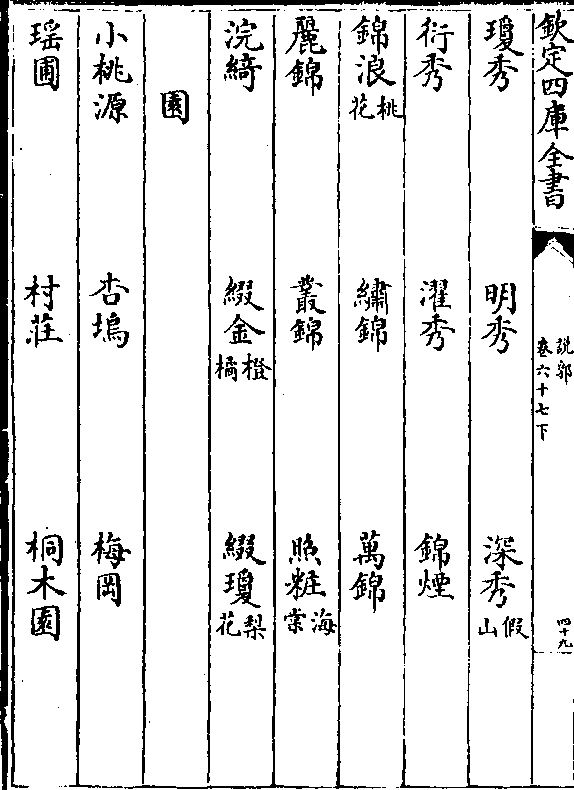 欽定四庫全書
說郛
卷六十七下
四十九
瓊秀 明秀 深秀假山
衍秀 濯秀 錦煙
錦浪桃花 繡錦 萬錦
麗錦 叢錦 照粧海棠
浣綺 綴金橙橘 綴瓊梨花
園
小桃源 杏塢 梅岡
瑤圃 村莊 桐木園